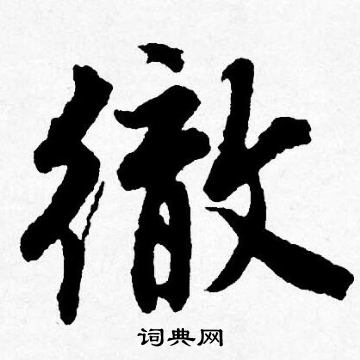 徹
词典网